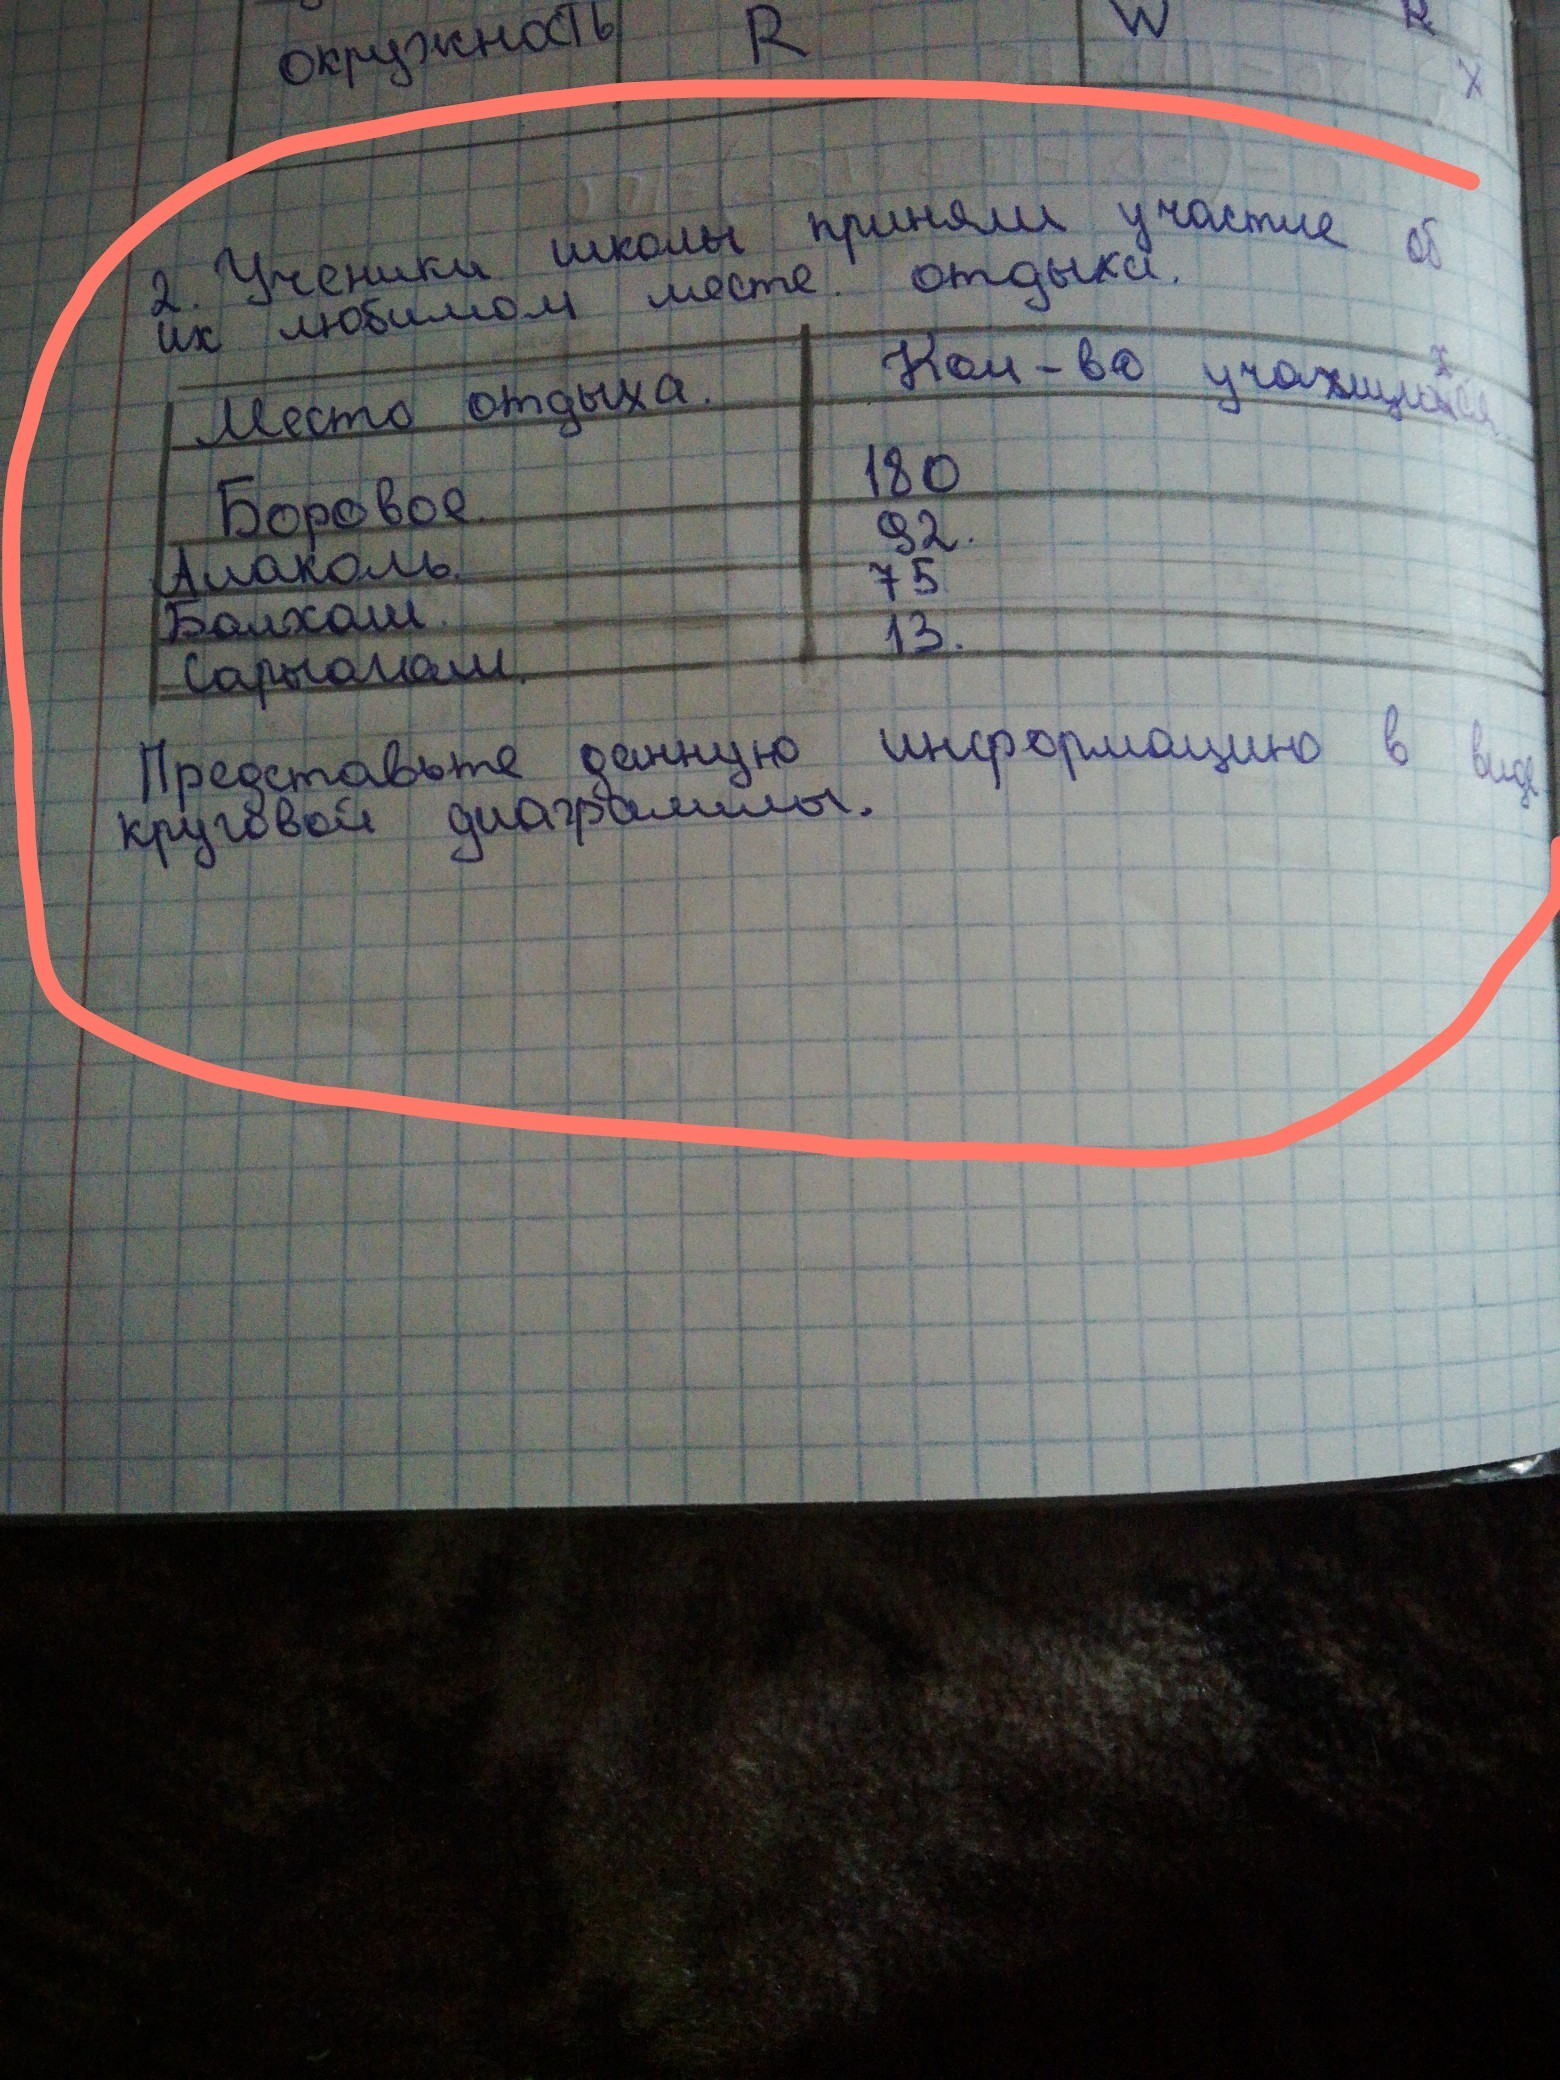 окружность R W R
х
2. Ученики школы приняли участие об
их любимом месте. отдыха.
Место отдыха. Кол-во учахщихся.
Боровое. 180
Алаколь. 92.
Балхаш. 75
Сарыагаш. 13.
Представьте данную информацию в виде
круговой диаграммы.